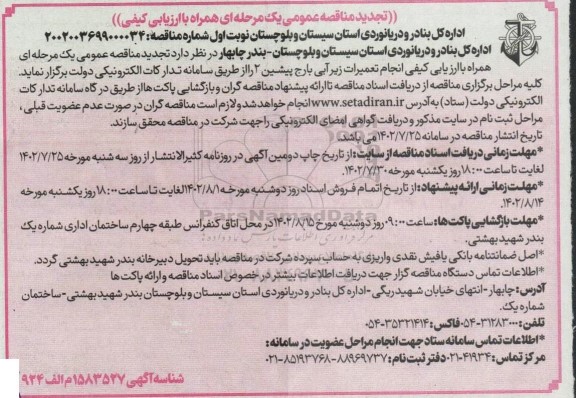 ((تجدید مناقصه عمومی یک مرحله ای همراه با ارزیابی کیفی))
اداره کل بنادر و دریانوردی استان سیستان و بلوچستان نوبت اول شماره مناقصه: ۲۰۰۲۰۰۳۶۹۹۰۰۰۰۳۴
اداره کل بنادر و دریانوردی استان سیستان و بلوچستان-بندر چابهار در نظر دارد تجدید مناقصه عمومی یک مرحله ای
همراه با ارزیابی کیفی انجام تعمیرات زیر آبی بارج پیشین ۲ را از طریق سامانه تدارکات الکترونیکی دولت برگزار نماید.
کلیه مراحل برگزاری مناقصه از دریافت اسناد مناقصه تا ارائه پیشنهاد مناقصه گران و بازگشایی پاکت ها از طریق درگاه سامانه تدارکات
الکترونیکی دولت (ستاد) به آدرس www.setadiran.ir انجام خواهد شد و لازم است مناقصه گران در صورت عدم عضویت قبلی،
مراحل ثبت نام در سایت مذکور و دریافت گواهی امضای الکترونیکی را جهت شرکت در مناقصه محقق سازند.
تاریخ انتشار مناقصه در سامانه ۱۴۰۲/۷/۲۵ می باشد.
*مهلت زمانی دریافت اسناد مناقصه از سایت: از تاریخ چاپ دومین آگهی در روزنامه کثیرالانتشار از روز سه شنبه مورخه ۱۴۰۲/۷/۲۵
لغایت تا ساعت ۱۸:۰۰ روز یکشنبه مورخه ۱۴۰۲/۷/۳۰.
*مهلت زمانی ارائه پیشنهاد: از تاریخ اتمام فروش اسناد روز دوشنبه مورخه ۱۴۰۲/۸/۱ لغایت تا ساعت ۱۸:۰۰ روز یکشنبه مورخه
۱۴۰۲/۸/۱۴.
*مهلت بازگشایی پاکت ها: ساعت ۰۹:۰۰ روز دوشنبه مورخ ۱۴۰۲/۸/۱۵ در محل اتاق کنفرانس طبقه چهارم ساختمان اداری شماره یک
بندر شهید بهشتی.
*اصل ضمانتنامه بانکی یا فیش نقدی واریزی به حساب سپرده شرکت در مناقصه باید تحویل دبیرخانه بندر شهید بهشتی گردد.
*اطلاعات تماس دستگاه مناقصه گزار جهت دریافت اطلاعات بیشتر در خصوص اسناد مناقصه و ارائه پاکت ها
آدرس: چابهار-انتهای خیابان شهید ریگی-اداره کل بنادر و دریانوردی استان سیستان و بلوچستان بندر شهید بهشتی-ساختمان
شماره یک.
تلفن: ۰۵۴-۳۱۲۸۳۰۰۰ فاکس: ۰۵۴-۳۵۳۲۱۴۱۴
*اطلاعات تماس سامانه ستاد جهت انجام مراحل عضویت در سامانه:
مرکز تماس: ۰۲۱-۴۱۹۳۴ دفتر ثبت نام: ۸۸۹۶۹۷۳۷-۰۲۱-۸۵۱۹۳۷۶۸
شناسه آگهی ۱۵۸۳۵۲۷ م الف ۹۲۴